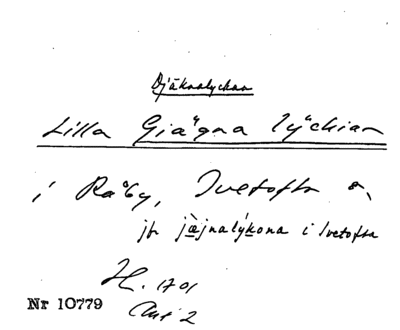 Djäknalyckan
Lilla Giägna lÿckian
i Råby, Ivetofta s.
jfr jäjnalýkona i Ivetofta
H. 1701
Nr 10779 Akt 2